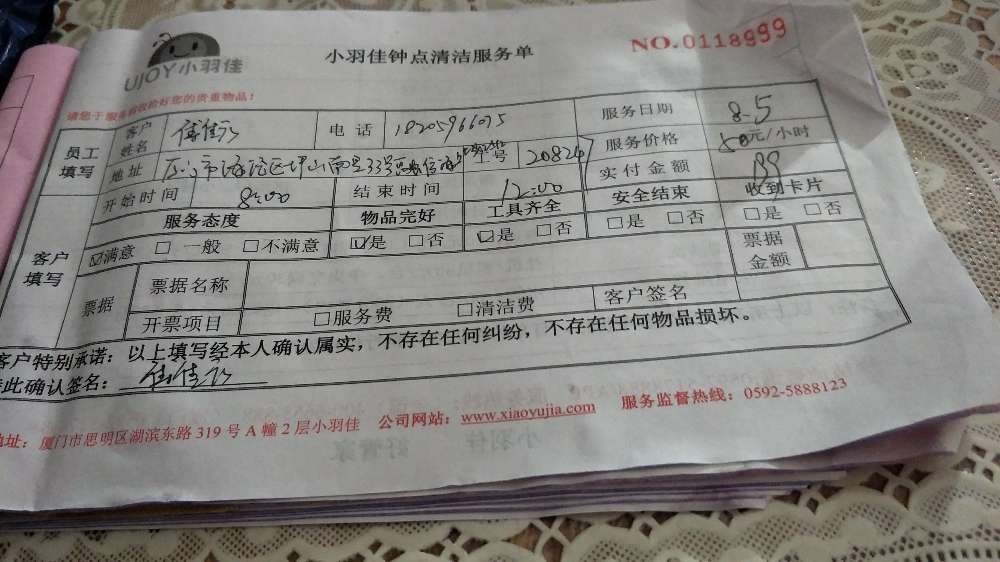 UJOY小羽佳
小羽佳钟点清洁服务单
NO.0118999
请您于服务前收拾好您的贵重物品!
员工填写
客户姓名
电话 18205966075
服务日期 8.5
地址
单号 208247
服务价格 50元/小时
开始时间 8:00
结束时间 12:00
实付金额
客户填写
服务态度 物品完好 工具齐全 安全结束 收到卡片
☑满意 □一般 □不满意 ☑是 □否 ☑是 □否 □是 □否 □是 □否
票据 票据名称 票据金额
开票项目 □服务费 □清洁费 客户签名
客户特别承诺：以上填写经本人确认属实，不存在任何纠纷，不存在任何物品损坏。
特此确认签名：
地址：厦门市思明区湖滨东路 319 号 A 幢 2 层小羽佳 公司网站：www.xiaoyujia.com 服务监督热线：0592-5888123